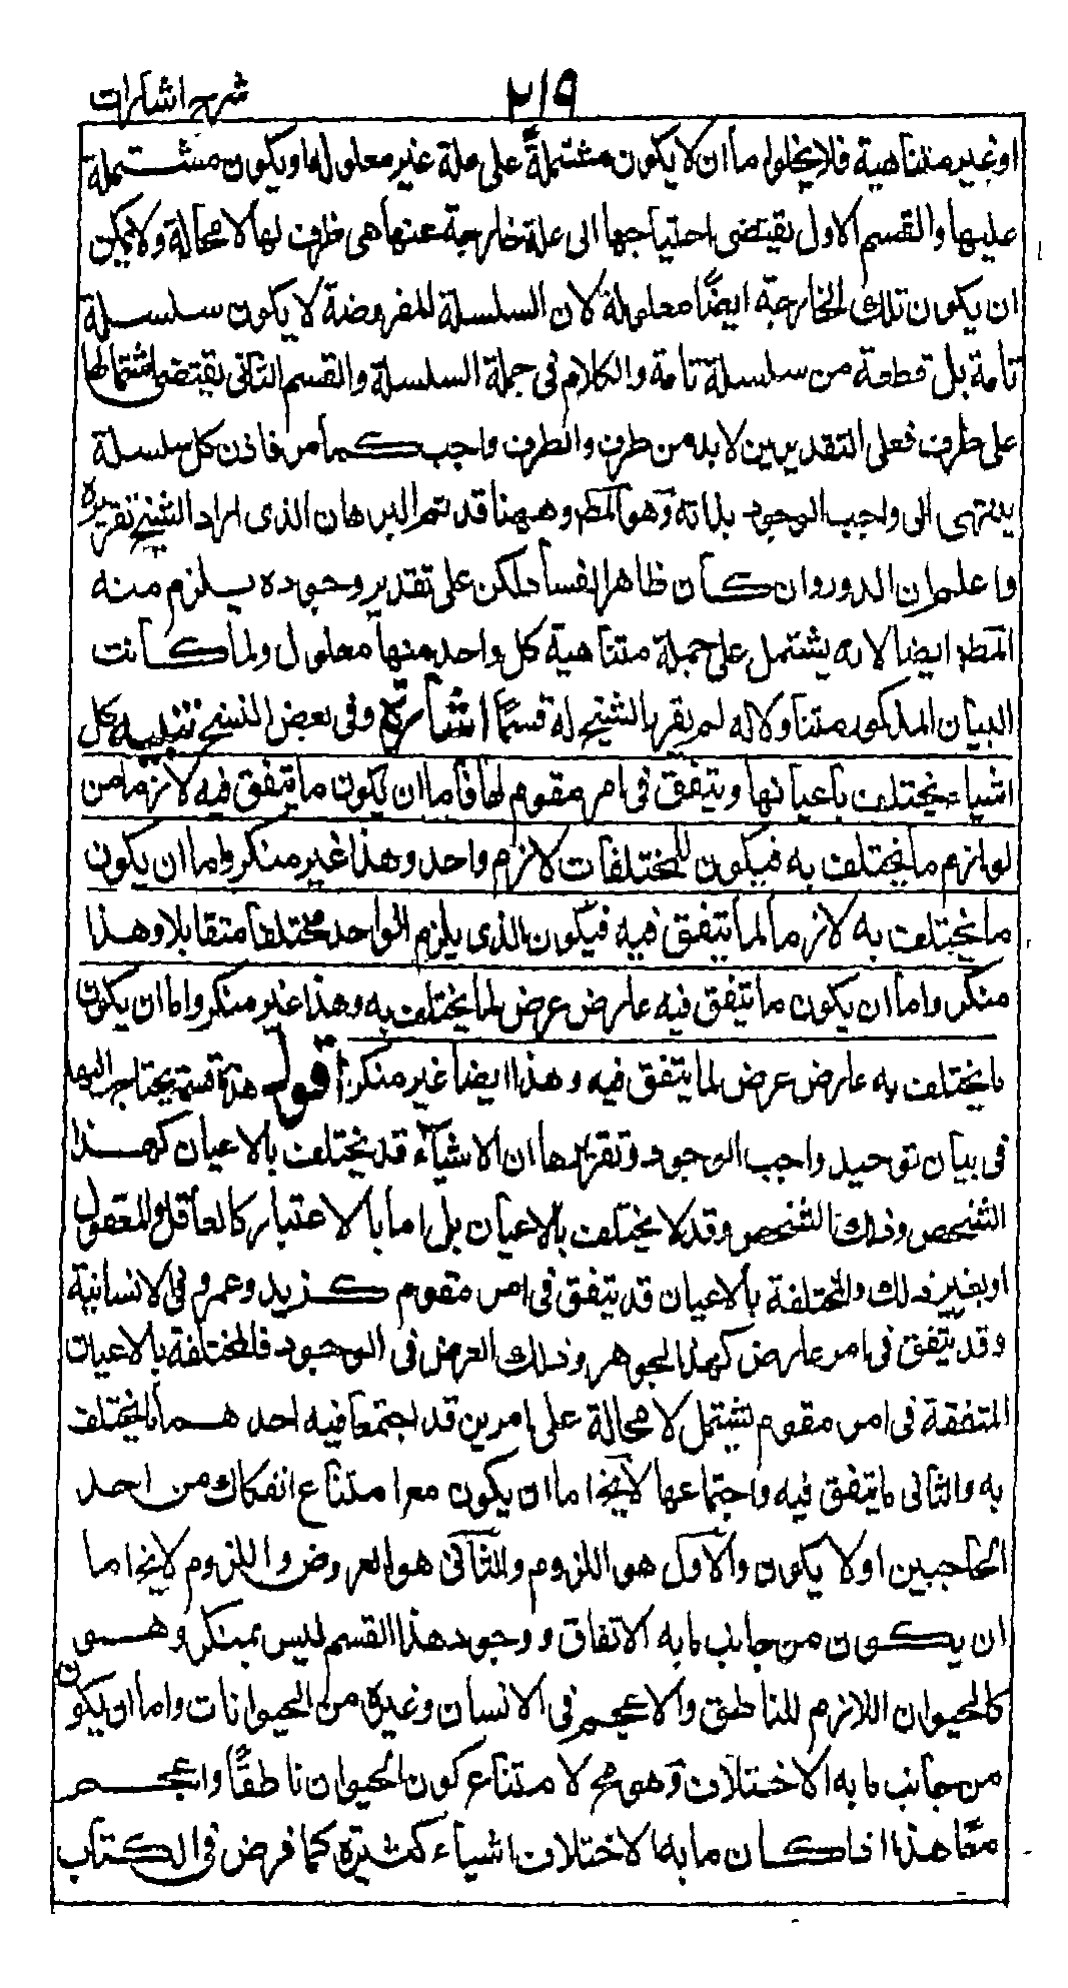 شرح اشارات
٢١٩
او غير متناهية فلا يخلو اما ان لا يكون مشتملةً على علة غير معلولها او يكون مشتملة
عليها والقسم الاول يقتضى احتياجها الى علة خارجة عنها هى طرف لها لا محالة ولا يمكن
ان يكون تلك الخارجة ايضًا معلولة لان السلسلة المفروضة لا يكون سلسلة
تامة بل قطعة من سلسلة تامة والكلام فى جملة السلسلة والقسم الثانى يقتضى اشتمالها
على طرف فعلى التقديرين لابد من طرف والطرف واجب كما مر فاذن كل سلسلة
ينتهى الى واجب الوجود بذاته وهو المط وههنا قد تم البرهان الذى اراد الشيخ تقريره
واعلم ان الدور وان كان ظاهر الفساد لكن على تقدير وجوده يلزم منه
المط ايضا لانه يشتمل على جملة متناهية كل واحد منها معلول ولما كانت
البيان المذكور متناولا له لم يفرد الشيخ له قسمًا اشارة وفى بعض النسخ تنبيه كل
اشياء يختلف باعيانها ويتفق فى امر مقوم لها فاما ان يكون ما يتفق فيه لازما من
لوازم ما يختلف به فيكون للمختلفات لازم واحد وهذا غير منكر واما ان يكون
ما يختلف به لازما لما يتفق فيه فيكون الذى يلزم الواحد مختلفا متقابلا وهذا
منكر واما ان يكون ما يتفق فيه عارض عرض لما يختلف به وهذا غير منكر واما ان يكون
ما يختلف به عارض عرض لما يتفق فيه وهذا ايضا غير منكر اقول هذه قسمة يحتاج اليها
فى بيان توحيد واجب الوجود وتقريرها ان الاشياء قد يختلف بالاعيان كهذا
الشخص وذلك الشخص وقد لا يختلف بالاعيان بل اما بالاعتبار كالعاقل والمعقول
او بغير ذلك والمختلفة بالاعيان قد يتفق فى امر مقوم كزيد وعمرو فى الانسانية
وقد يتفق فى امر عارض كهذا الجوهر وذلك العرض فى الوجود فالمختلفة بالاعيان
المتفقة فى امر مقوم يشتمل لا محالة على امرين قد اجتمعا فيه احدهما ما يختلف
به والثانى ما يتفق فيه واجتماعها لا يخ اما ان يكون مع امتناع انفكاك من احد
الجانبين او لا يكون والاول هو اللزوم والثانى هو العروض واللزوم لا يخ اما
ان يكون من جانب ما به الاتفاق ووجود هذا القسم ليس بمنكر وهو
كالحيوان اللازم للناطق والاعجم فى الانسان وغيره من الحيوانات واما ان يكون
من جانب ما به الاختلاف وهو مح لامتناع كون الحيوان ناطقًا واعجم
معًا هذا اذا كان ما به الاختلاف اشياء كثيرة كما فرض فى الكتاب